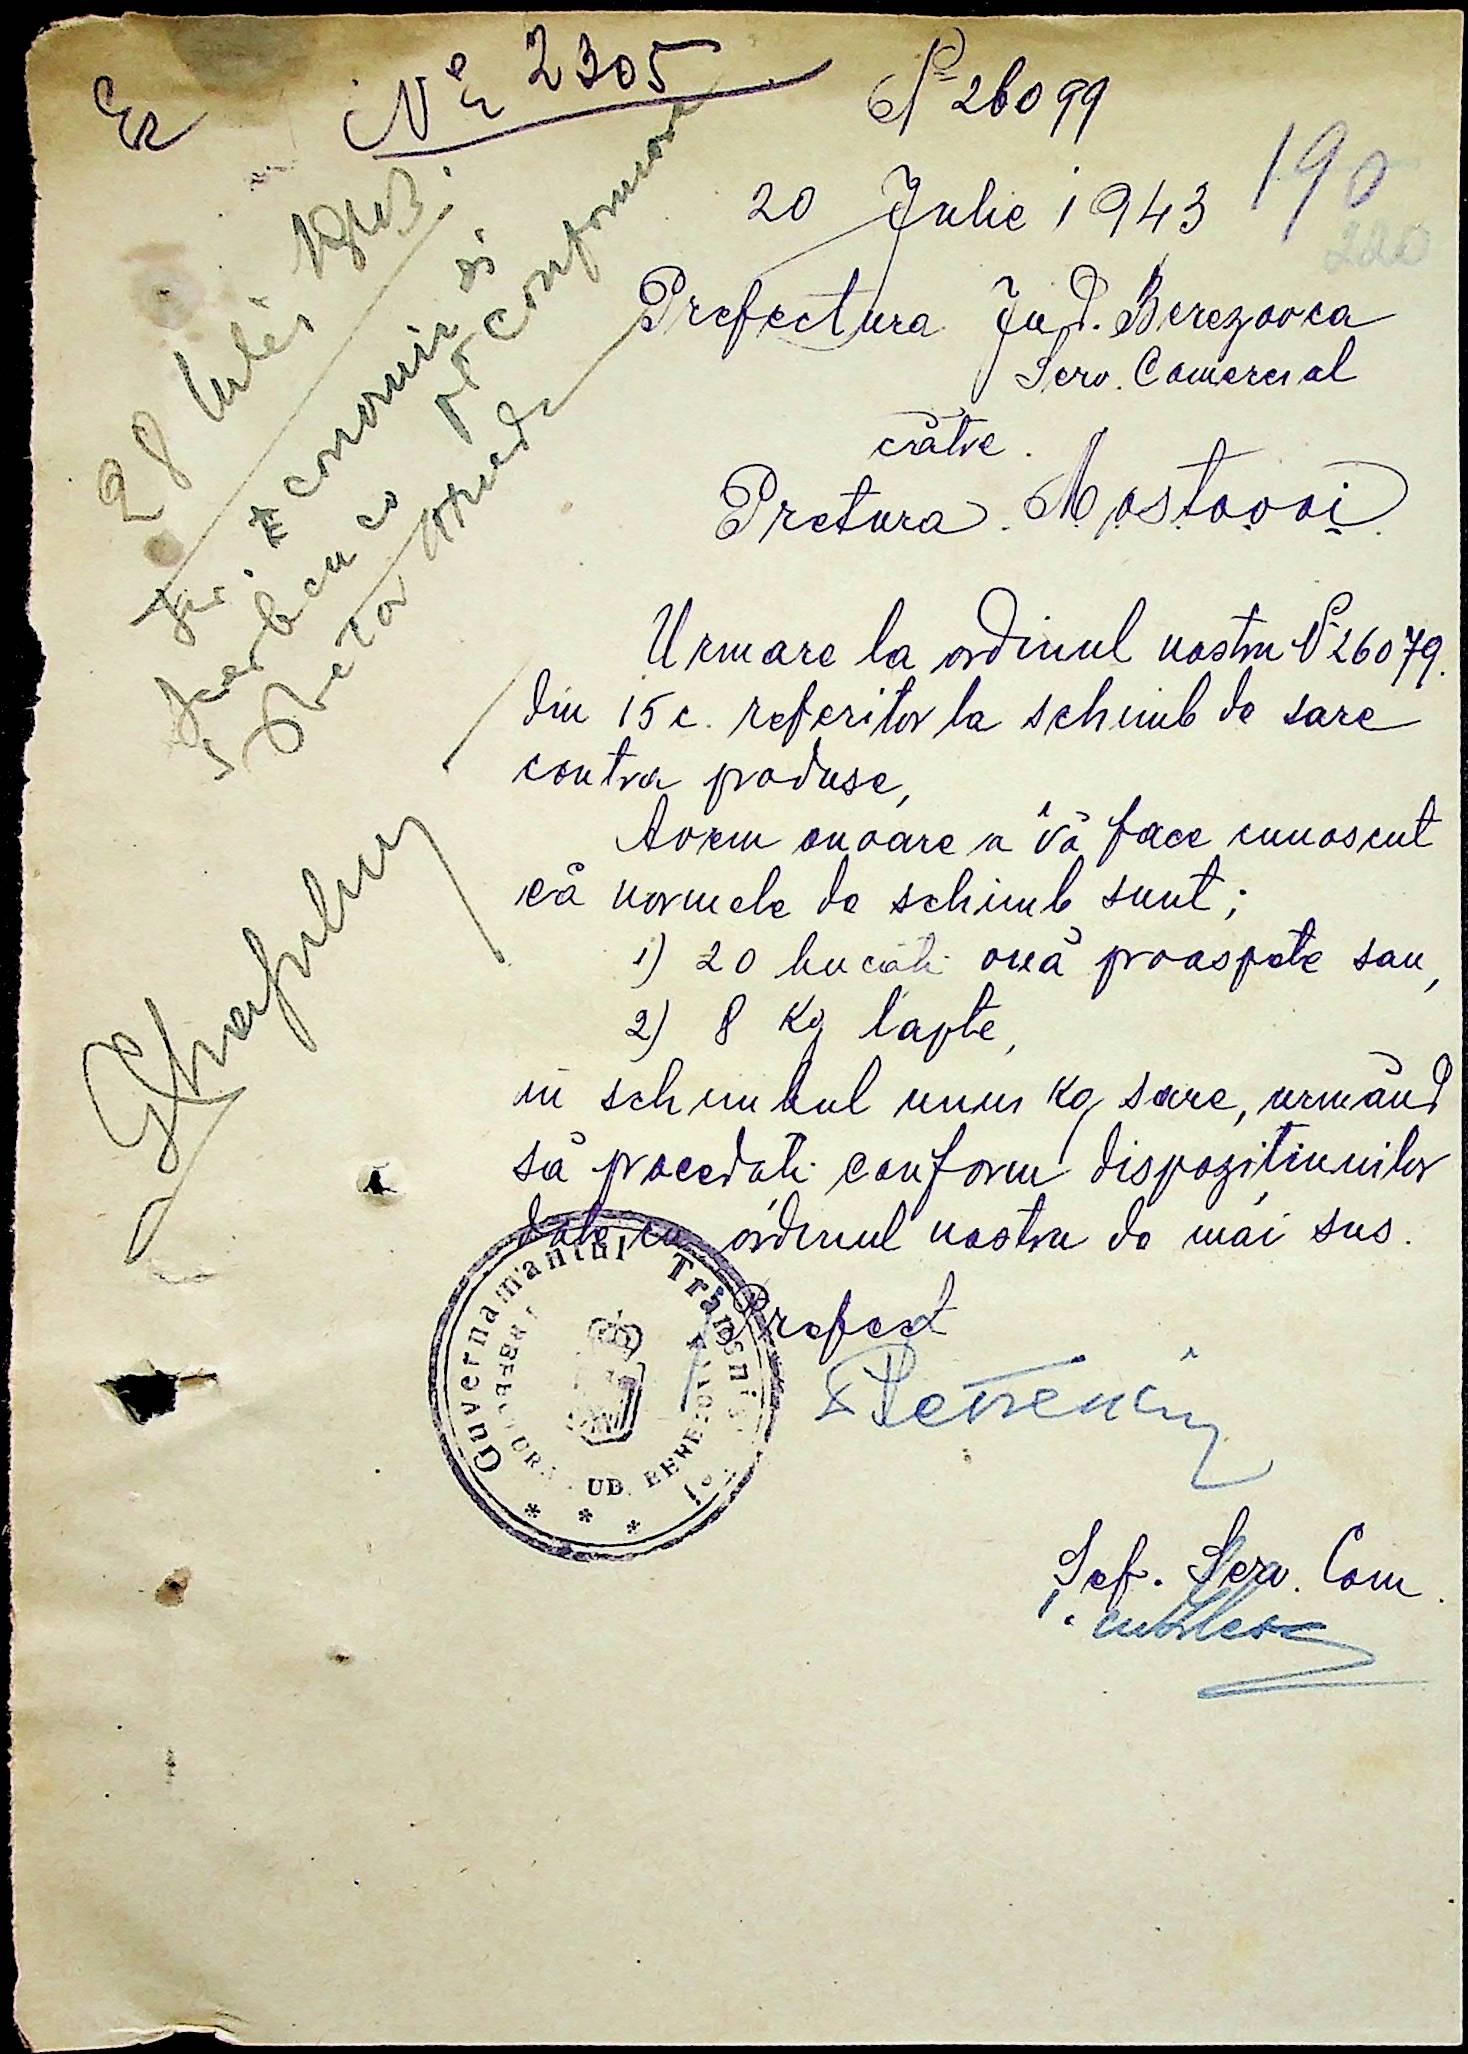 Ec № 2305
№ 26099
190
220
20 Julie 1943
Prefectura Jud. Berezovca
Serv. Comercial
către.
Pretura. Mostovoi.
28 Iulie 1943.
Economic și
pt conformare
Pretor
Urmare la ordinul nostru № 26079.
din 15 c. referitor la schimb de sare
contra produse,
Avem onoare a Vă face cunoscut
că normele de schimb sunt;
1) 20 bucăți ouă proaspete sau,
2) 8 Kg lapte,
in schimbul unui Kg sare, urmând
să procedati conform dispozițiunilor
date cu ordinul nostru de mai sus.
Prefect
Guvernamantul Transnistriei
PREFECTURA JUD. BEREZOVCA
* * *
Șef. Serv. Com.